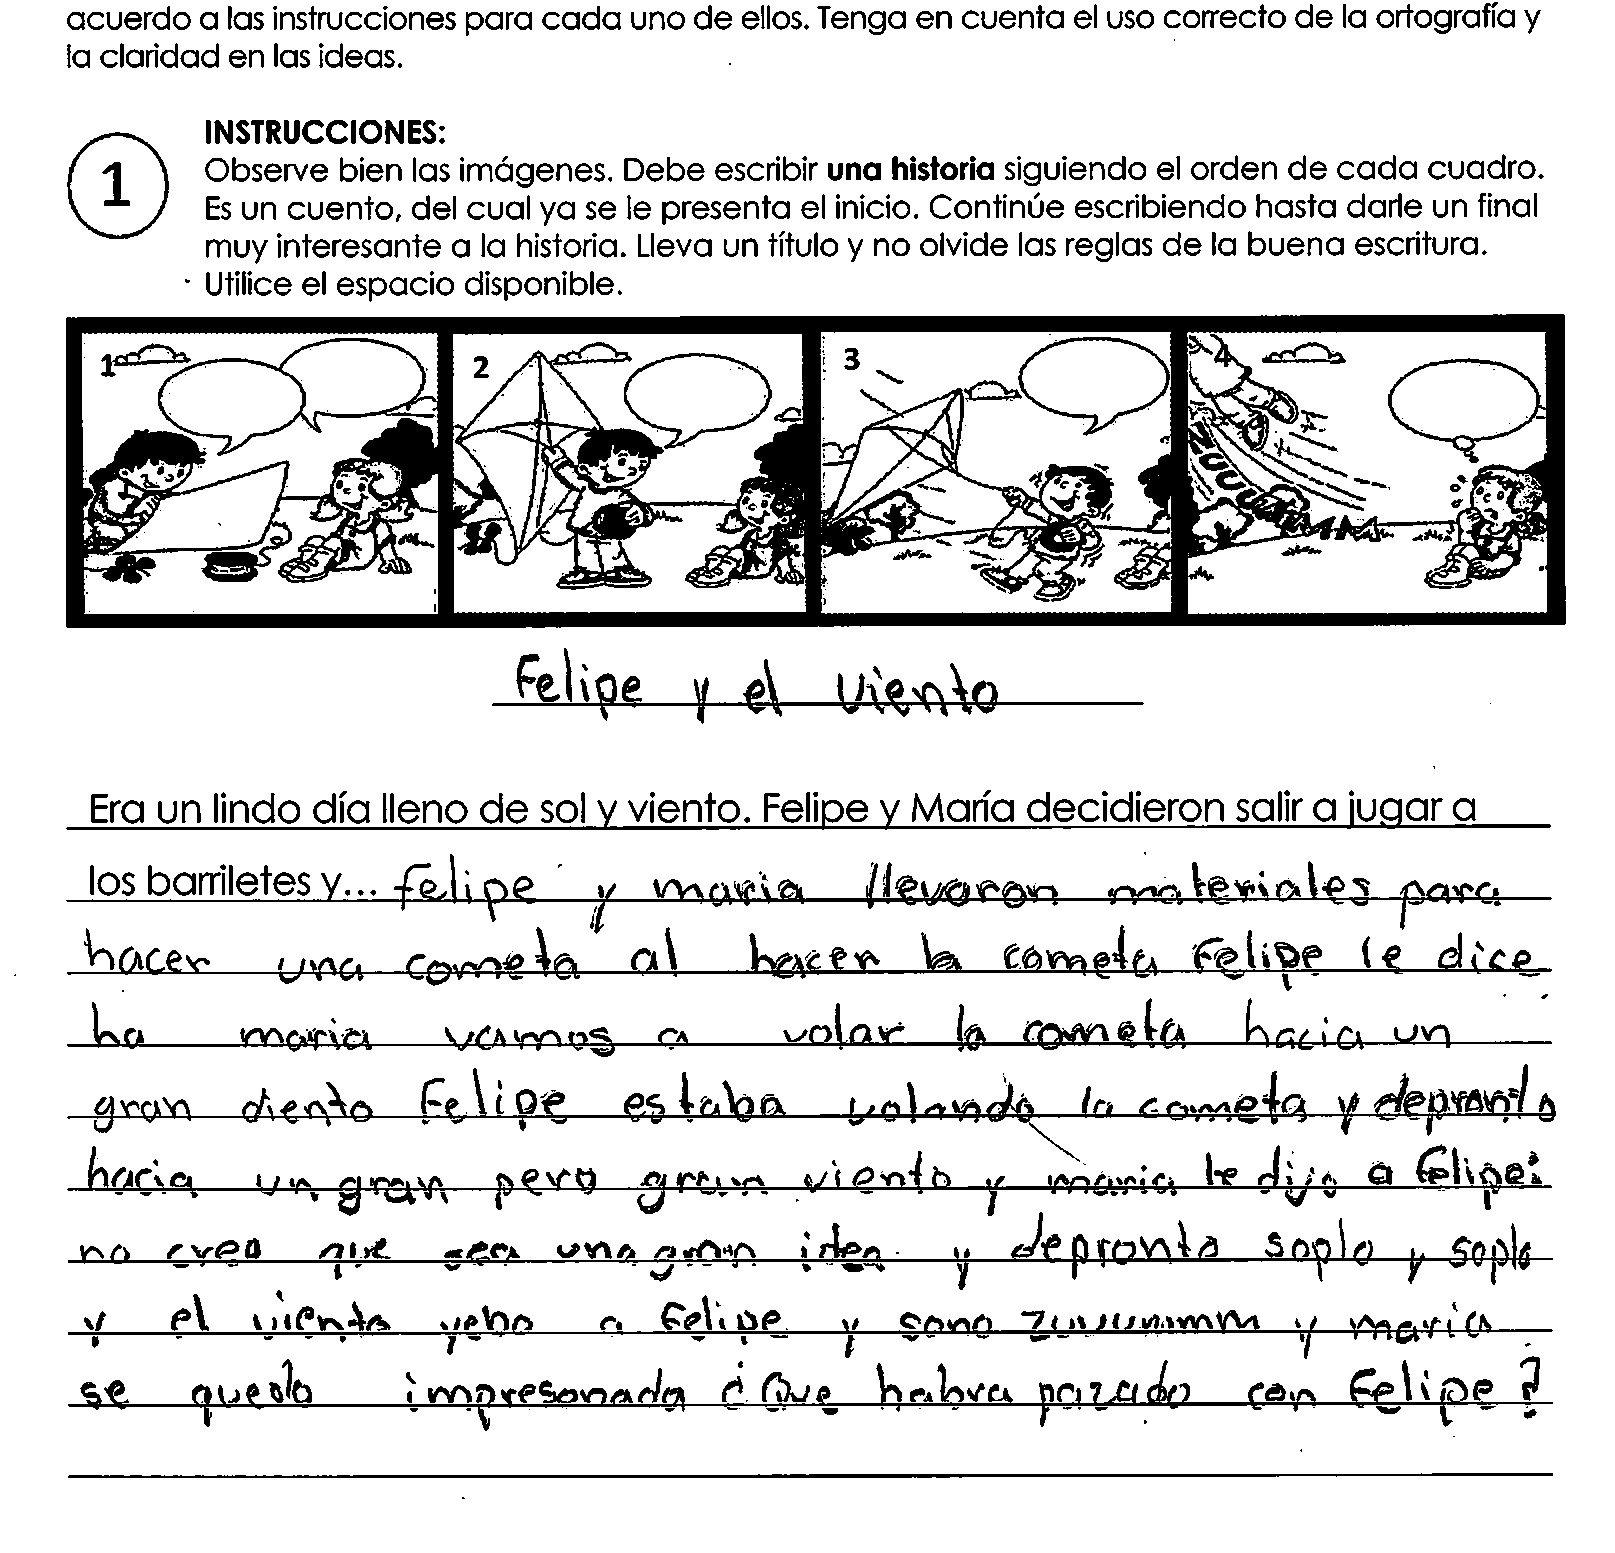 acuerdo a las instrucciones para cada uno de ellos. Tenga en cuenta el uso correcto de la ortografía y
la claridad en las ideas.
INSTRUCCIONES:
1
Observe bien las imágenes. Debe escribir una historia siguiendo el orden de cada cuadro.
Es un cuento, del cual ya se le presenta el inicio. Continúe escribiendo hasta darle un final
muy interesante a la historia. Lleva un título y no olvide las reglas de la buena escritura.
Utilice el espacio disponible.
1 2 3 4
ZUUUUMMM
Felipe y el viento
Era un lindo día lleno de sol y viento. Felipe y María decidieron salir a jugar a
los barriletes y... felipe y maria llevaron materiales para
hacer una cometa al hacer la cometa Felipe le dice
ha maria vamos a volar la cometa hacia un
gran diento Felipe estaba volando la cometa y depronto
hacia un gran pero gran viento y maria le dijo a Felipe:
no creo que sea una gran idea y depronto soplo y soplo
y el viento yebo a Felipe y sono zuuuummm y maria
se quedo impresonada ¿Que habra pazado con Felipe?